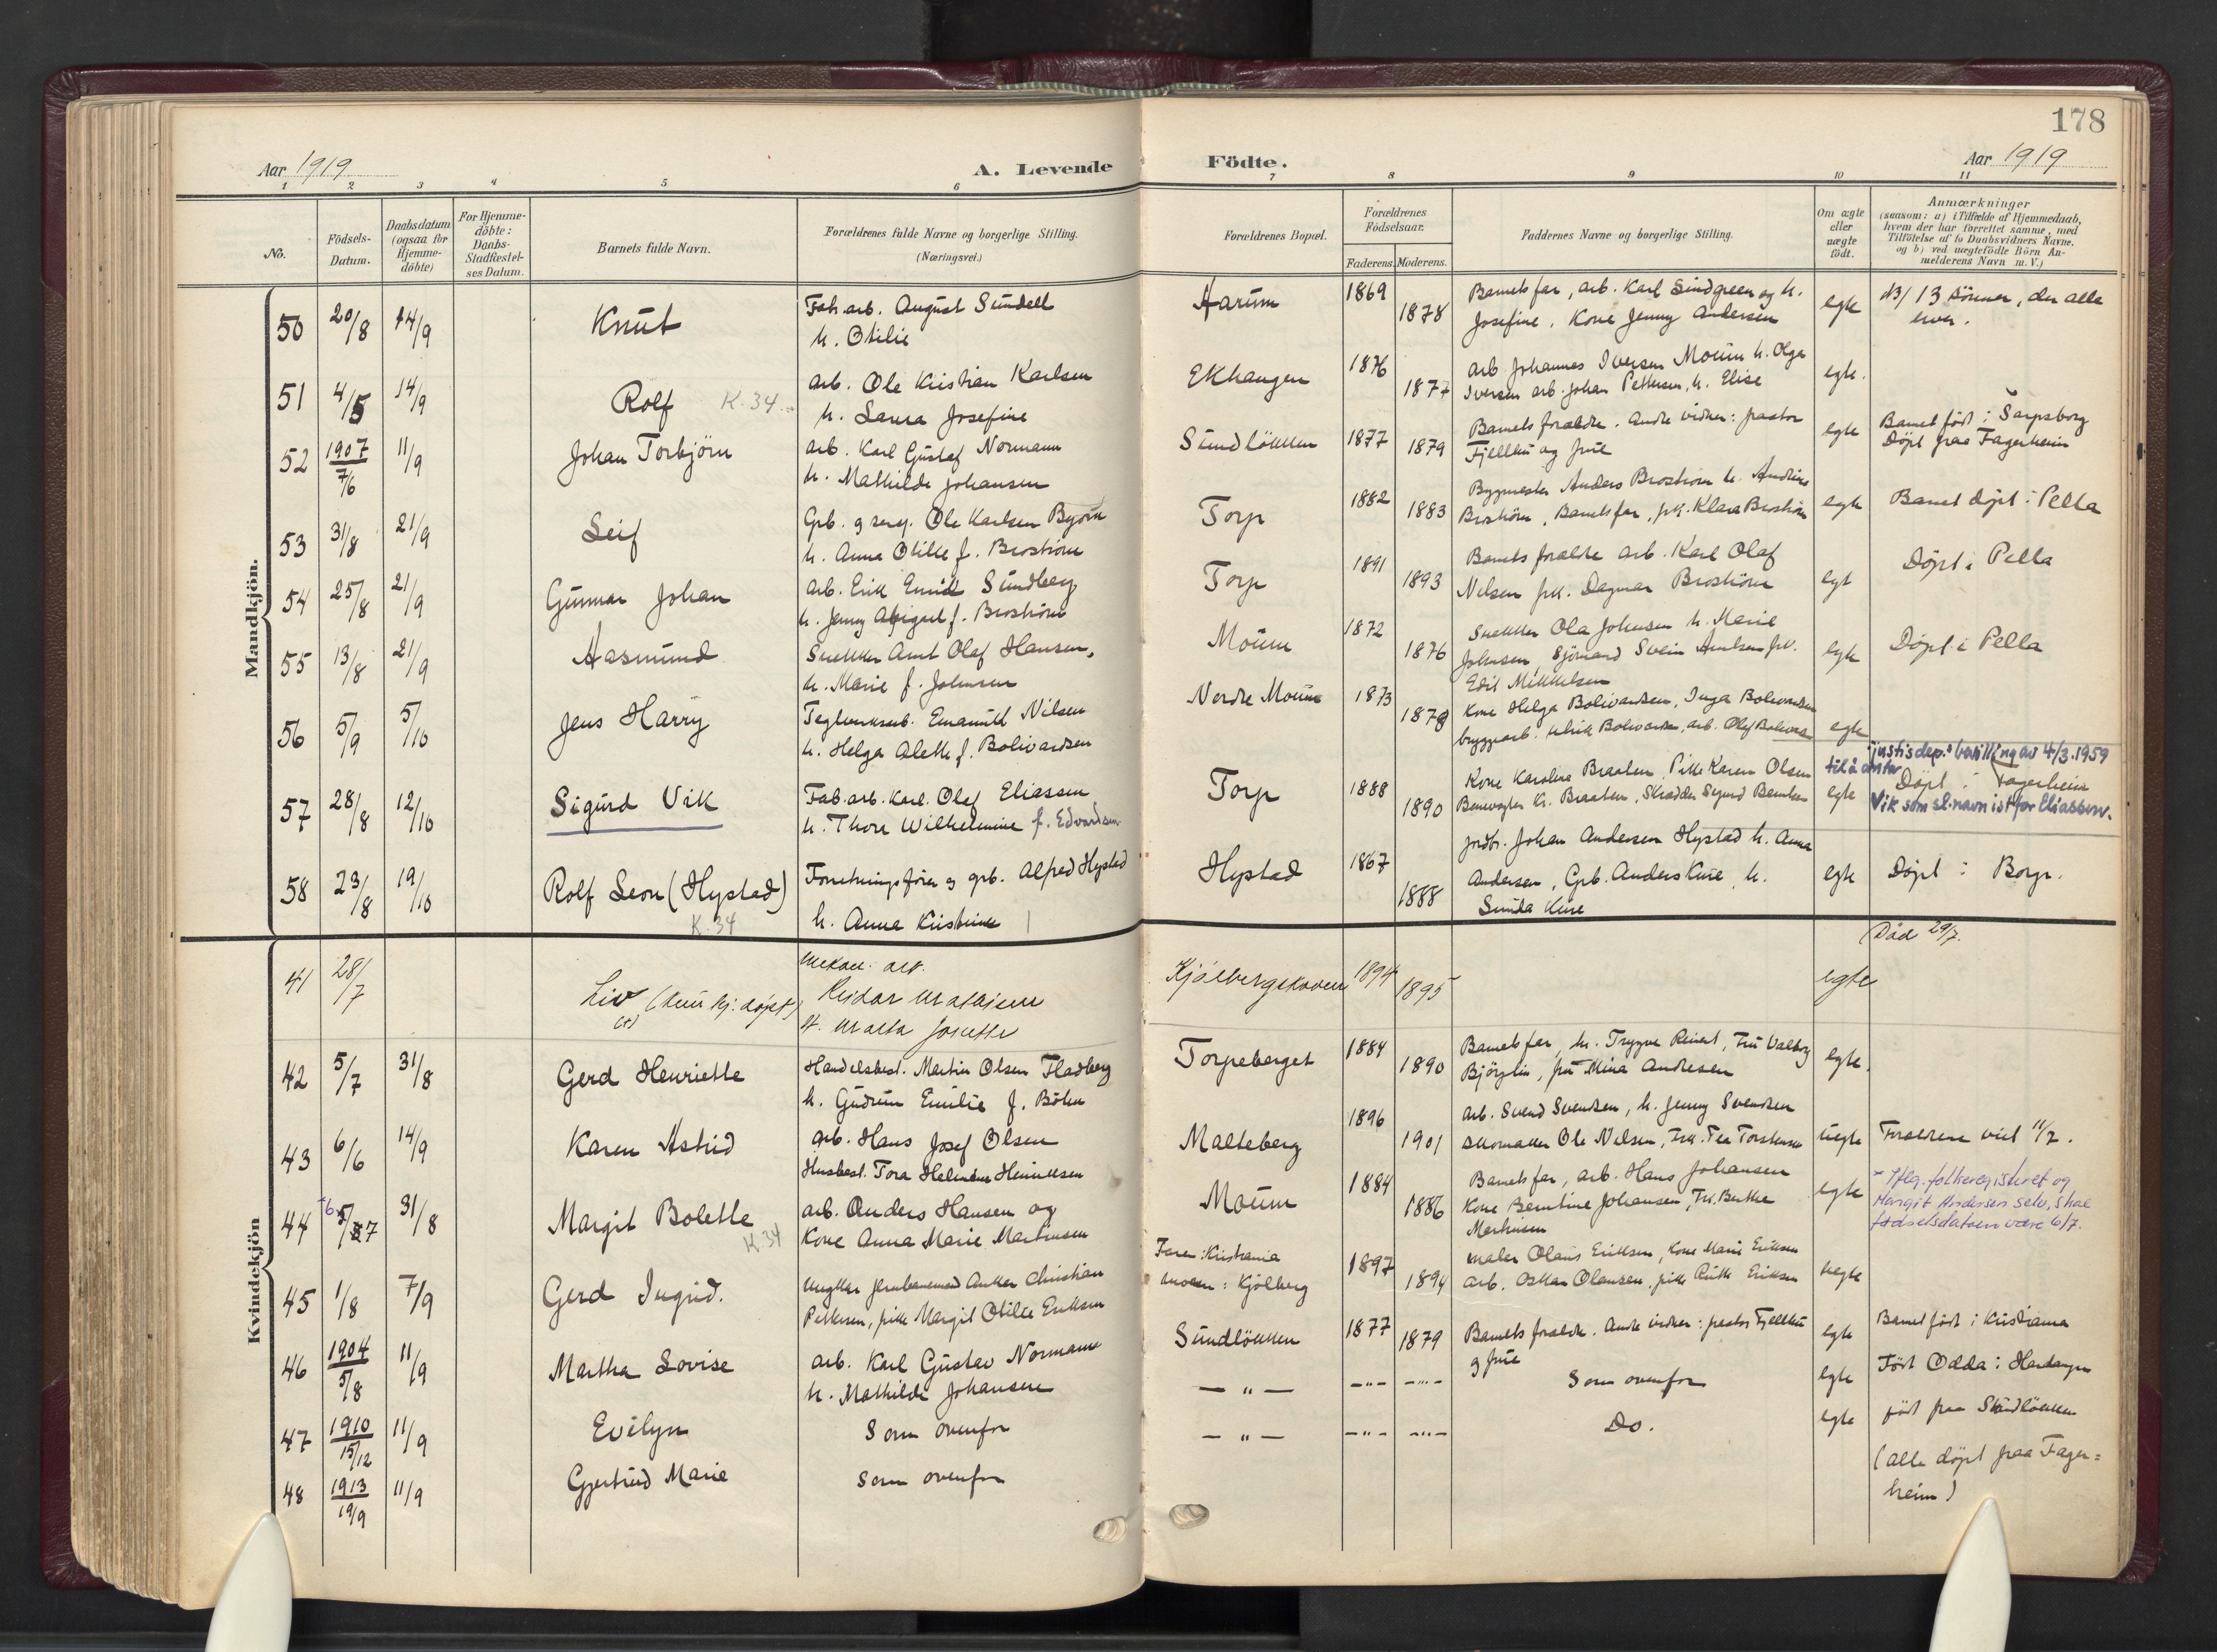 178
Aar 1919
A. Levende
Födte.
Aar 1919
1 2 3 4 5 6 7 8 9 10 11
No.
Födsels-Datum.
Daabsdatum (ogsaa for Hjemme-döbte)
For Hjemme-döbte: Daabs-Stadfæstel-ses Datum.
Barnets fulde Navn.
Forældrenes fulde Navne og borgerlige Stilling. (Næringsvei.)
Forældrenes Bopæl.
Forældrenes Födselsaar.
Faderens. Moderens.
Faddernes Navne og borgerlige Stilling.
Om ægte eller uægte födt.
Anmærkninger
(saasom: a) i Tilfælde af Hjemmedaab,
hvem der har forrettet samme, med
Tilföielse af to Daabsvidners Navne,
og b) ved uægtefödte Börn An-
melderens Navn m. V.)
Mandkjön.
50 20/8 14/9 Knut
Fab.arb. August Sundell
h. Otilie
Aarum 1869 1878
Barnets far, arb. Karl Lindgreen og h.
Josefine. Kone Jenny Andersen
egte
13 sönner, der alle
lever.
51 4/5 14/9 Rolf K. 34
arb. Ole Kristian Karlsen
h. Laura Josefine
Ekhaugen 1876 1877
arb Johannes Iversen Moum h. Olga
Iversen arb. Johan Pettersen, h. Elise
egte.
52 1907 7/6 11/9 Johan Torbjörn
arb. Karl Gustaf Normann
h. Mathilde Johansen
Sundlökken 1877 1879
Barnets foreldre. Andre vidner: pastor
Fjellbu og frue
egte
Barnet födt i Sarpsborg
Döpt paa Fagerheim
53 31/8 21/9 Leif
Grb. og serg. Ole Karlsen Björn
h. Anna Otilie f. Broström
Torp 1882 1883
Bygmester Anders Broström h. Andrine
Broström, Barnets far, frk. Klara Broström
egte
Barnet döpt i Pella
54 25/8 21/9 Gunnar Johan
arb. Erik Emil Sundberg
h. Jenny Abigael f. Broström
Torp 1891 1893
Barnets foreldre arb. Karl Olaf
Nilsen frk. Dagmar Broström
egt
Döpt i Pella
55 13/8 21/9 Aasmund
Snekker Arnt Olaf Hansen,
h. Marie f. Johnsen
Moum 1872 1876
Snekker Ola Johnsen h. Marie
Johnsen, Sjömand Svein Arnlsen frk.
Edit Mikkelsen
egte
Döpt i Pella
56 5/9 5/10 Jens Harry
Teglverksarb. Emanuel Nilsen
h. Helga Alette f. Bolivardsen
Nordre Moum 1873 1878
Kone Helga Bolivardsen, Inga Bolivardsen
bryggearb. Ulrik Bolivardsen, arb. Olaf Bolivardsen
egte
57 28/8 12/10 Sigurd Vik
Fab.arb. Karl Olaf Eliassen
h. Thora Wilhelmine f. Edvardsen
Torp 1888 1890
Kone Karoline Braaten, Pike Karen Olsen
Banevogter Kr. Braaten, Skrædder Sigurd
egte
justisdep.s bevilling av 4/3.1959
til å anta
Döpt i Fagerheim
Vik som sl.navn istfor Eliassen.
58 23/8 19/10 Rolf Leon (Hystad) K. 34
Forretningsförer og grb. Alfred Hystad
h. Anna Kristine
Hystad 1867 1888
jrdbr. Johan Andersen Hystad h. Anna
Andersen, Grb. Anders h.
egte
Döpt i Borge.
Kvindekjön
41 28/7 Liv (hjdöpt)
mekan. arb.
Reidar Mathisen
h. Marta Josette
Kjölbergskoven 1894 1895
egte
Död 29/7.
42 5/7 31/8 Gerd Henriette
Handelsbest. Martin Olsen Fladberg
h. Gudrun Emilie f. Böhn
Torpeberget 1884 1890
Barnets far, hr. Trygve Reinert, Fru Valborg
frk Mina Andresen
egte.
43 6/6 14/9 Karen Astrid
arb. Hans Josef Olsen
Husbest. Tora Helmine Henriksen
Malteberg 1896 1901
arb. Svend Svendsen, h. Jenny Svendsen
skomaker Ole Nilsen, Frk. Tea Torstensen
uegte
Foreldrene viet 11/7.
44 6 5/7 31/8 Margit Bolette K. 34
arb. Anders Hansen og
Kone Anna Marie Martinsen
Moum 1884 1886
Barnets far, arb. Hans Johansen
Kone Berntine Johansen, Frk. Berthe
Martinsen
egte
- Iflg. folkeregisteret og
Margit Andersen selv, skal
födselsdatoen være 6/7.
45 1/8 7/9 Gerd Ingrid.
Ungkar jernbanemand Anker Christian
Pettersen, pike Margit Otilie Eriksen
Faren: Kristiania
moren: Kjölberg
1897 1894
maler Olaus Eriksen, Kone Marie Eriksen
arb. Oskar Olausen, pike Ruth Eriksen
uegte
46 1904 5/8 11/9 Martha Lovise
arb. Karl Gustav Normann
h. Mathilde Johansen
Sundlökken 1877 1879
Barnets foreldre. Andre vidner: pastor Fjellbu
og frue
egte
Barnet födt i Kristiania
47 1910 15/12 11/9 Evelyn
Som ovenfor
— " — -"- -"-
Som ovenfor
egte
Födt Odda i Hardanger
48 1913 19/9 11/9 Gjertrud Marie
Som ovenfor
— " — -"- -"-
Do.
egte
födt paa Sundlökken
(alle döpt paa Fager=
heim)